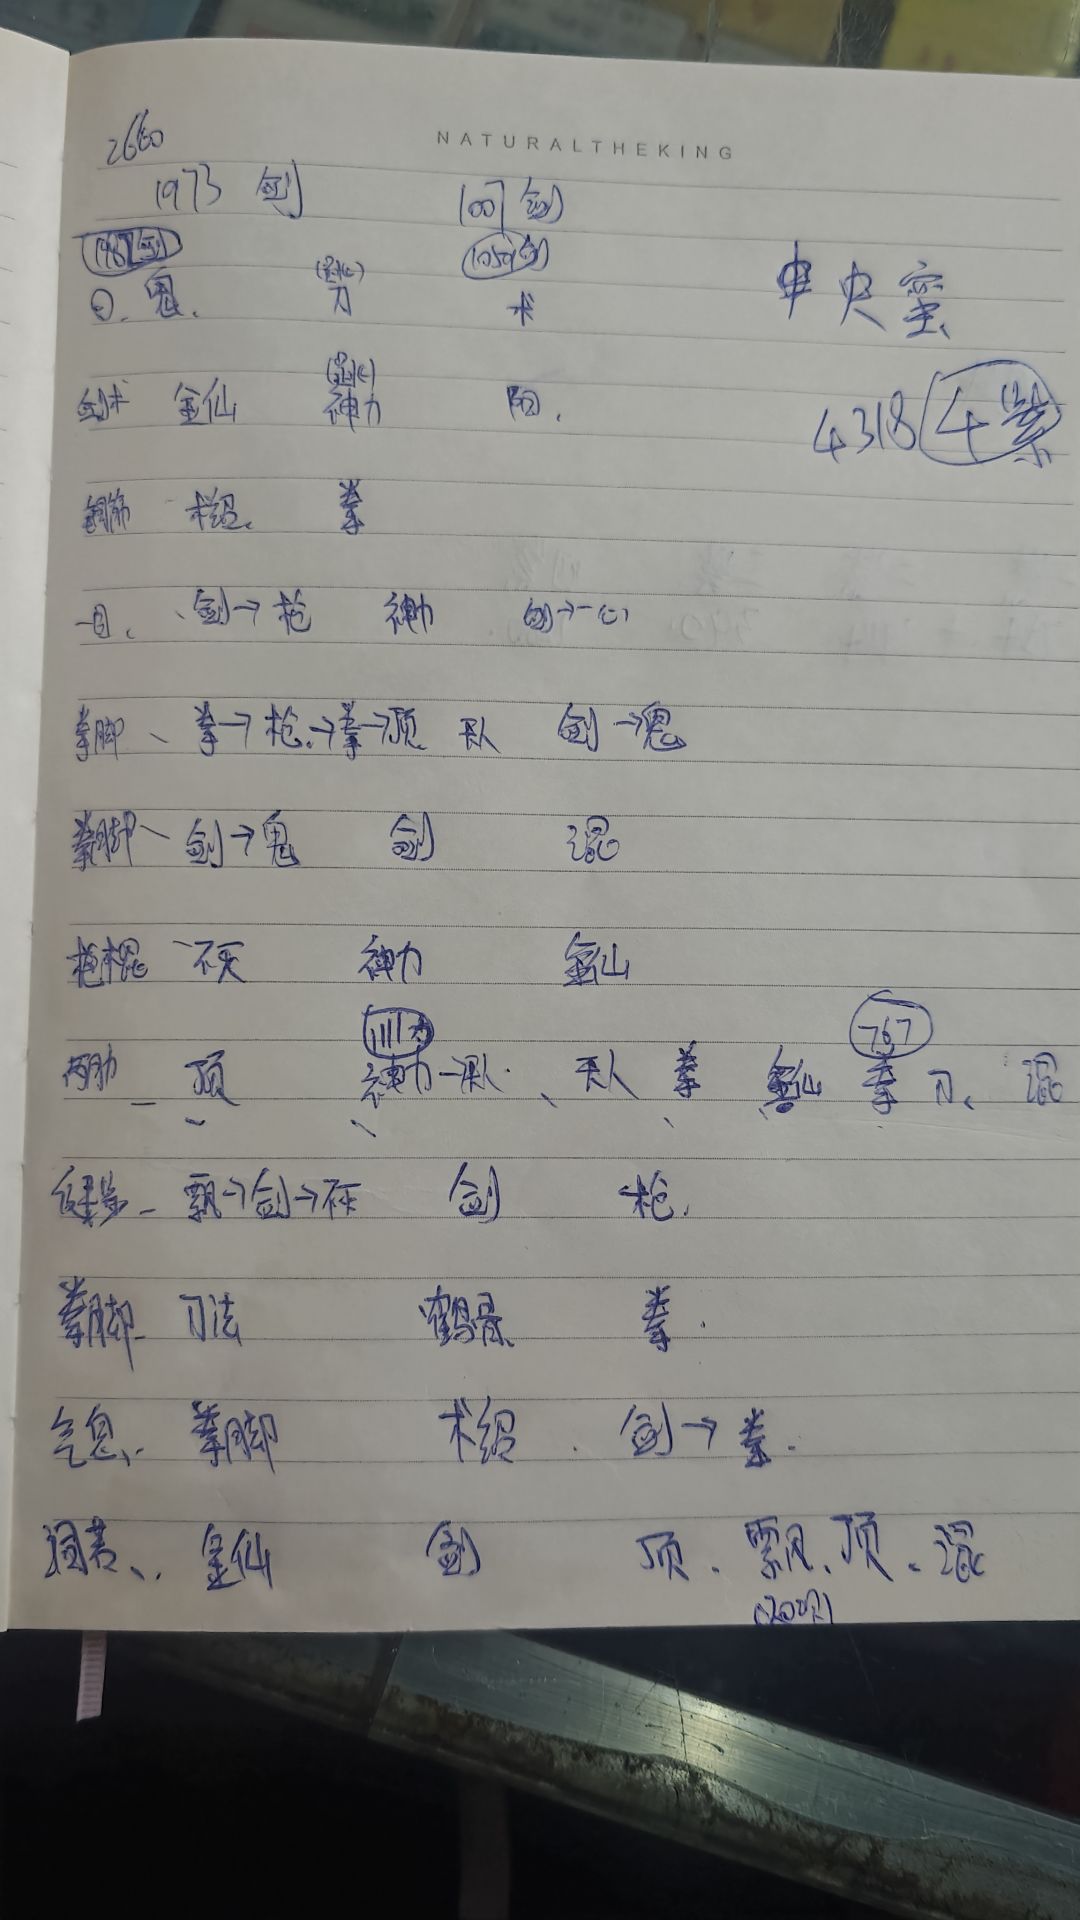 NATURALTHEKING
2660
1973 剑 1007 剑
1987剑 1059剑
日、鬼、 刀 术
中央
剑术 金仙 神力 阳.
4318 4紫
钢筋 术绍、 拳
一目、 、剑→枪 神力 剑→一心
拳脚 、 拳→枪、→拳→顶 天人 剑→鬼
拳脚、 剑→鬼 剑 混
枪棍、 不灭 神力 金仙
1111 767
两肋 一 顶 神力一 天人 拳 金仙 拳 刀、 混
健步 - 飘→剑→不灭 剑 枪.
拳脚 刀法 鹤骨 拳.
气息、. 拳脚 术绍 . 剑→拳.
词表、. 金仙 剑 顶、飘、顶、混